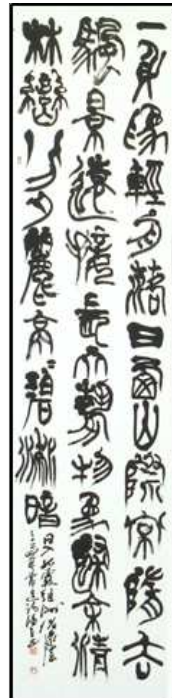 一身為輕舟落日西山際常隨去
帆景遠接長天勢物象歸余清
林巒分夕麗亭碧流暗
日入孤霞繼洲渚遠陰